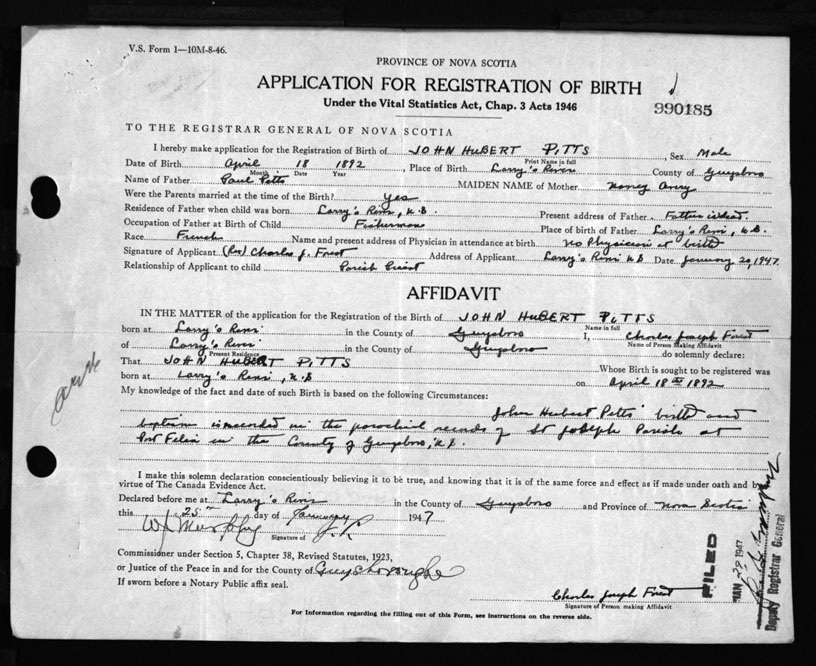 V.S. Form 1—10M-8-46.
PROVINCE OF NOVA SCOTIA
APPLICATION FOR REGISTRATION OF BIRTH
Under the Vital Statistics Act, Chap. 3 Acts 1946
990185
TO THE REGISTRAR GENERAL OF NOVA SCOTIA
I hereby make application for the Registration of Birth of JOHN HUBERT PITTS, Sex Male
Print Name in full
Date of Birth April 18 1892, Place of Birth Larry's River County of Guysboro
Month Date Year
Name of Father Paul Pitts MAIDEN NAME of Mother Nancy Avery
Were the Parents married at the time of the Birth? Yes
Residence of Father when child was born Larry's River, N.S. Present address of Father Father is dead.
Occupation of Father at Birth of Child Fisherman Place of birth of Father Larry's River, N.S.
Race French Name and present address of Physician in attendance at birth No Physician at birth
Signature of Applicant (Rev) Charles J. Forest Address of Applicant Larry's River N.S Date January 20, 1947.
Relationship of Applicant to child Parish Priest
AFFIDAVIT
IN THE MATTER of the application for the Registration of the Birth of JOHN HUBERT PITTS
Name in full
born at Larry's River in the County of Guysboro I, Charles Joseph Forest
Name of Person making Affidavit
of Larry's River in the County of Guysboro do solemnly declare:
Present Residence
That JOHN HUBERT PITTS Whose Birth is sought to be registered was
born at Larry's River, N.S on April 18th 1892
My knowledge of the fact and date of such Birth is based on the following Circumstances:
John Hubert Pitts' birth and
baptism is recorded in the parochial records of St Joseph Parish at
Port Felix in the County of Guysboro, N.S.
I make this solemn declaration conscientiously believing it to be true, and knowing that it is of the same force and effect as if made under oath and by
virtue of The Canada Evidence Act.
Declared before me at Larry's River in the County of Guysboro and Province of Nova Scotia
this 25th day of January 1947
W J Murphy J.P.
Signature of
Commissioner under Section 5, Chapter 38, Revised Statutes, 1923,
or Justice of the Peace in and for the County of Guysborough
If sworn before a Notary Public affix seal.
Charles Joseph Forest
Signature of Person making Affidavit
For Information regarding the filling out of this Form, see instructions on the reverse side.
FILED
JAN 29 1947
Deputy Registrar General